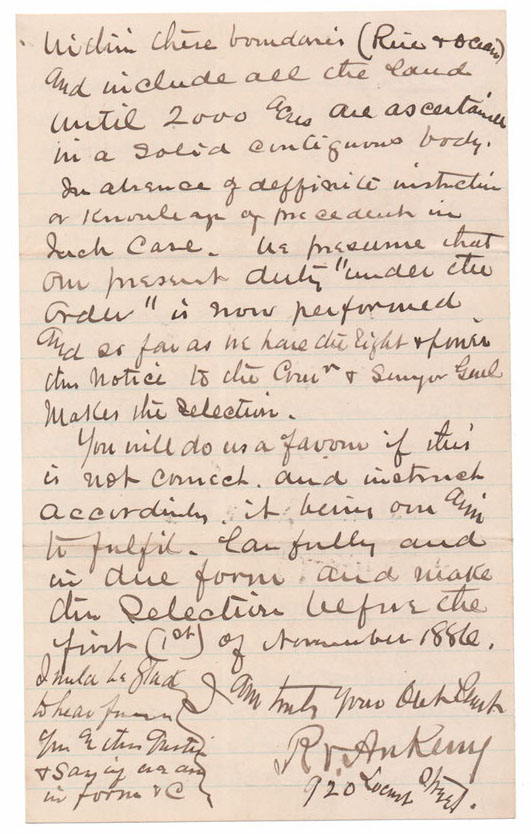 within these boundaries (River & Ocean)
and include all the land
until 2000 acres are ascertained
in a solid contiguous body.
In absence of deffinite instruction
or knowledge of precedent in
such case. We presume that
our present duty "under the
order" is now performed
and so far as we have the right & power
this notice to the Comr & Surveyor Genel
makes the selection.
You will do us a favour if this
is not correct. and instruct
accordingly. it being our aim
to fulfil. Carefully and
in due form and make
this selection before the
first (1st) of November 1886.
I am truly your Obt Servt
R v Ankeny
920 Locust Street.
I would be glad
to hear from
you
& saying we are
in form &C